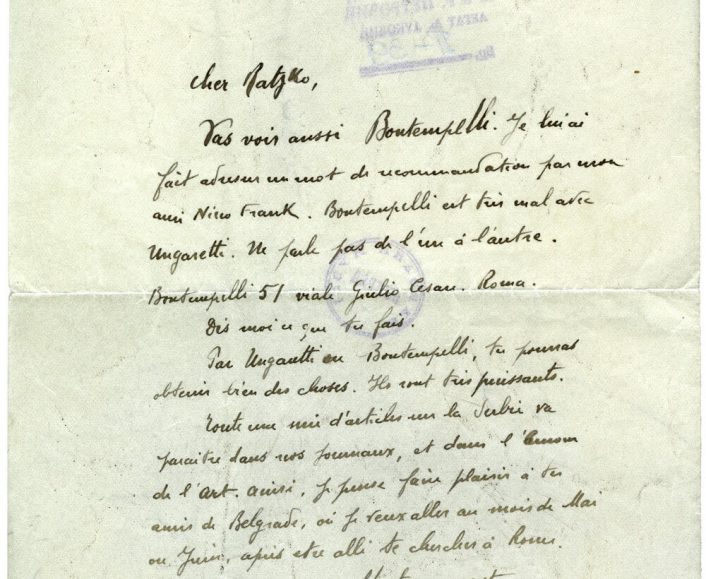 cher Ratzko,
Vas voir aussi Bontempelli. Je lui ai
fait adresser un mot de recommandation par mon
ami Nino Frank. Bontempelli est très mal avec
Ungaretti. Ne parle pas de l'un à l'autre.
Bontempelli 51 viale Giulio Cesare. Roma.
Dis moi ce que tu fais.
Par Ungaretti ou Bontempelli, tu pourras
obtenir bien des choses. Ils sont très puissants.
Toute une série d'articles sur la Serbie va
paraître dans nos journaux, et dans l'Amour
de l'Art. ainsi, je pense faire plaisir à tes
amis de Belgrade, où je veux aller au mois de Mai
ou Juin, après etre allé te chercher à Rome.